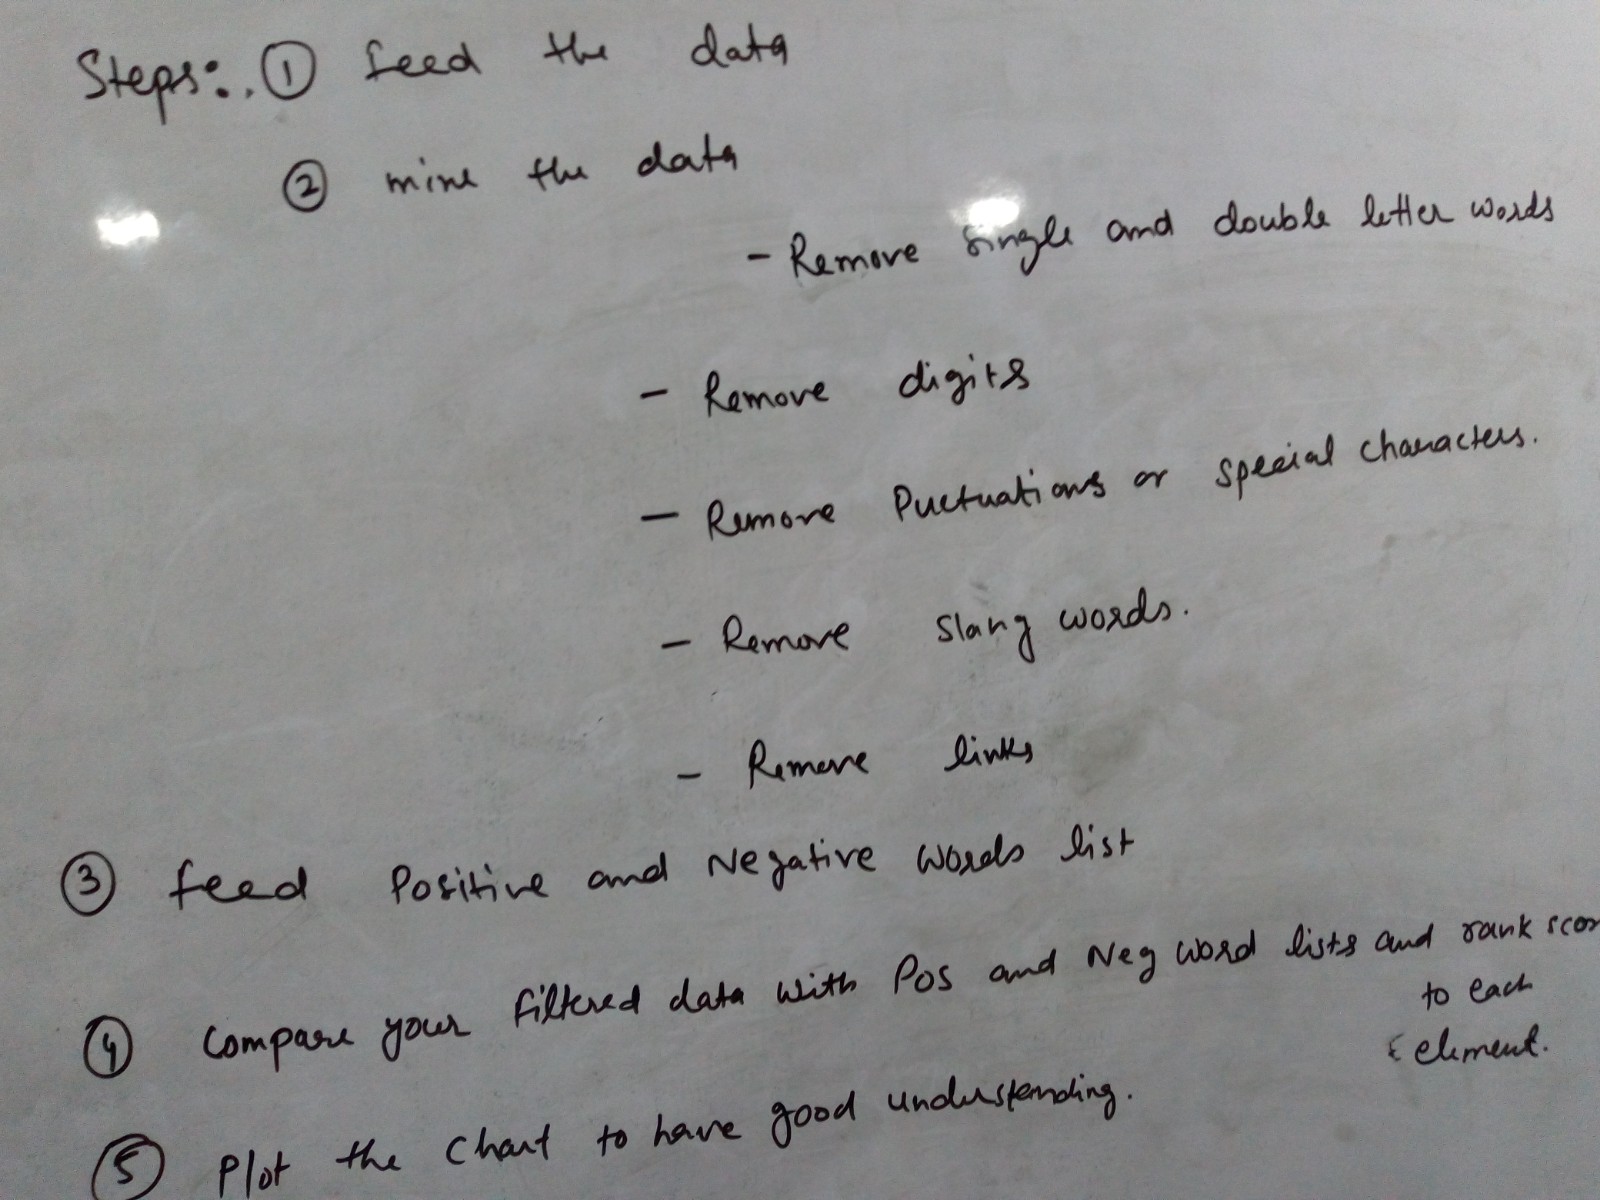 Steps:. ① feed the data
② mine the data
- Remove single and double letter words
- Remove digits
- Remove Puctuations or special characters.
- Remove slang words.
- Remove links
③ feed Positive and Negative words list
④ Compare your filtered data with Pos and Neg word lists and rank scor
to each
element.
⑤ Plot the Chart to have good understanding.